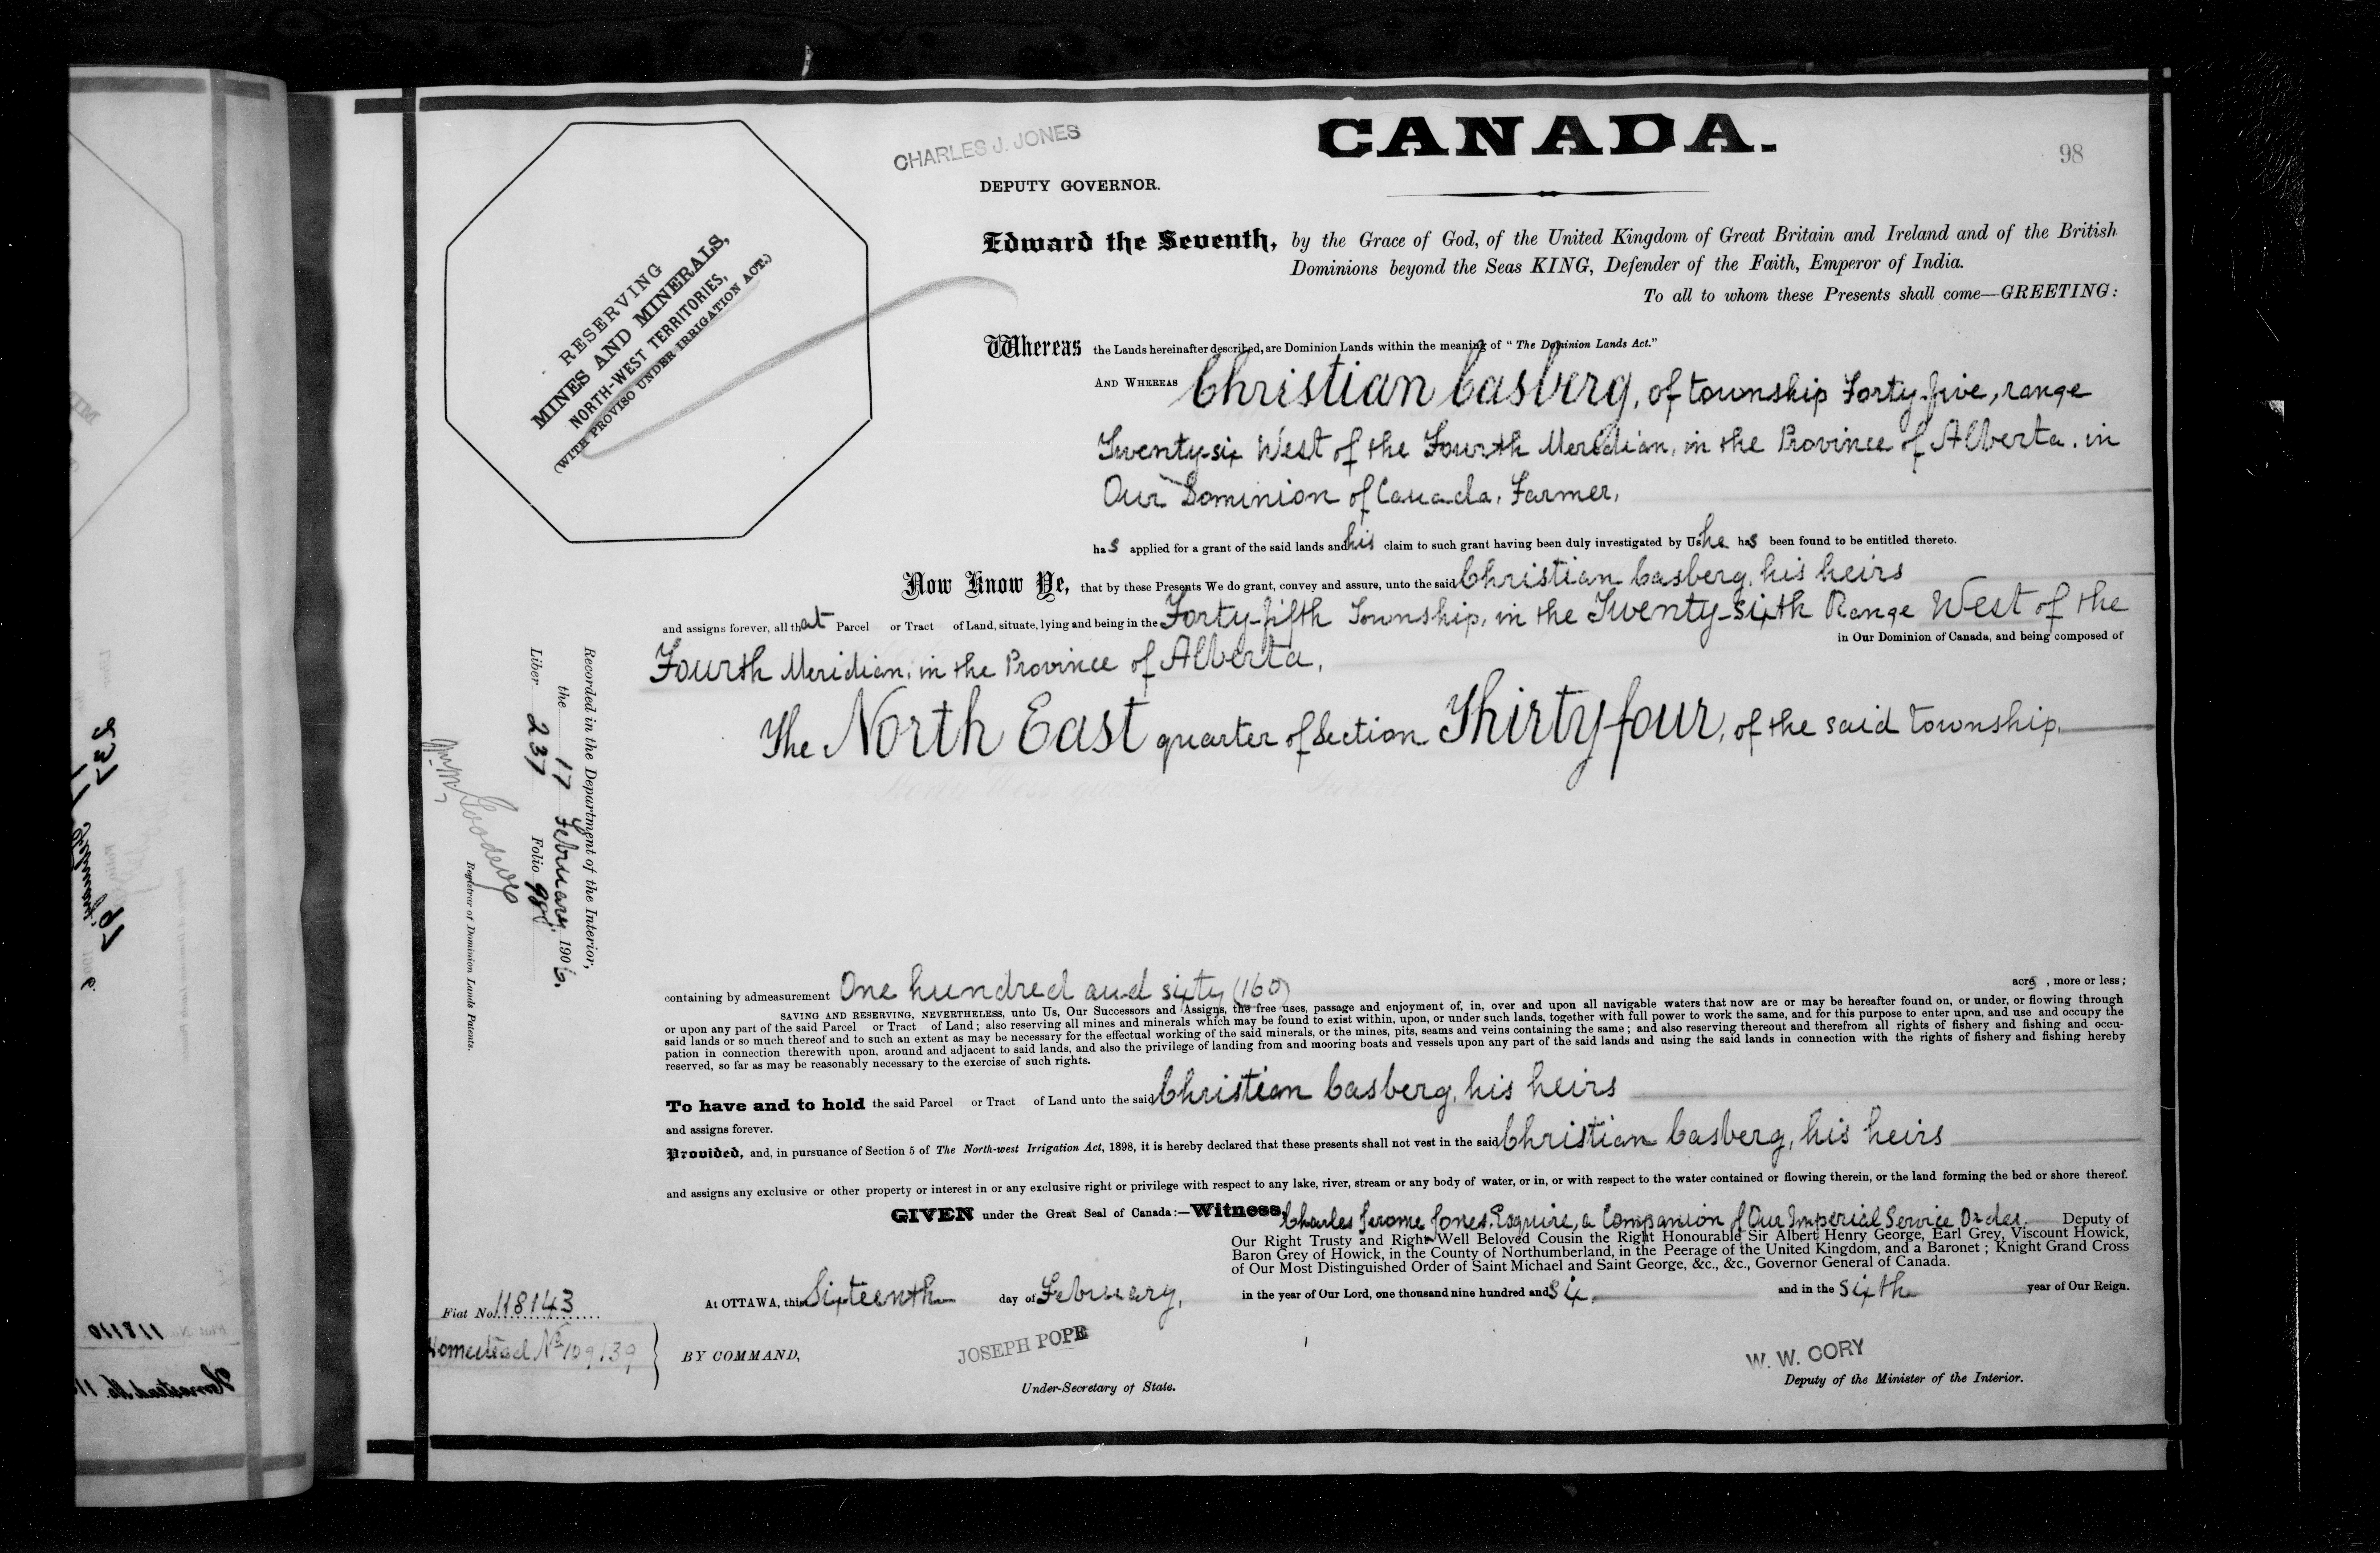 CHARLES J. JONES
DEPUTY GOVERNOR.
CANADA.
98
RESERVING
MINES AND MINERALS,
NORTH-WEST TERRITORIES,
(WITH PROVISO UNDER IRRIGATION ACT.)
Edward the Seventh, by the Grace of God, of the United Kingdom of Great Britain and Ireland and of the British
Dominions beyond the Seas KING, Defender of the Faith, Emperor of India.
To all to whom these Presents shall come—GREETING:
Whereas the Lands hereinafter described, are Dominion Lands within the meaning of "The Dominion Lands Act."
AND WHEREAS Christian Casberg, of township Forty-five, range
Twenty-six West of the Fourth Meridian, in the Province of Alberta, in
Our Dominion of Canada, Farmer,
has applied for a grant of the said lands and his claim to such grant having been duly investigated by Us he has been found to be entitled thereto.
Now Know Ye, that by these Presents We do grant, convey and assure, unto the said Christian Casberg, his heirs
and assigns forever, all that Parcel or Tract of Land, situate, lying and being in the Forty-fifth Township, in the Twenty-sixth Range West of the
in Our Dominion of Canada, and being composed of
Fourth Meridian, in the Province of Alberta,
The North East quarter of Section Thirty four, of the said township.
Recorded in the Department of the Interior,
the 17 February, 1906,
Liber 237 Folio 98
Registrar of Dominion Lands Patents.
containing by admeasurement One hundred and sixty (160) acres, more or less;
SAVING AND RESERVING, NEVERTHELESS, unto Us, Our Successors and Assigns, the free uses, passage and enjoyment of, in, over and upon all navigable waters that now are or may be hereafter found on, or under, or flowing through
or upon any part of the said Parcel or Tract of Land; also reserving all mines and minerals which may be found to exist within, upon, or under such lands, together with full power to work the same, and for this purpose to enter upon, and use and occupy the
said lands or so much thereof and to such an extent as may be necessary for the effectual working of the said minerals, or the mines, pits, seams and veins containing the same; and also reserving thereout and therefrom all rights of fishery and fishing and occu-
pation in connection therewith upon, around and adjacent to said lands, and also the privilege of landing from and mooring boats and vessels upon any part of the said lands and using the said lands in connection with the rights of fishery and fishing hereby
reserved, so far as may be reasonably necessary to the exercise of such rights.
To have and to hold the said Parcel or Tract of Land unto the said Christian Casberg, his heirs
and assigns forever.
Provided, and, in pursuance of Section 5 of The North-west Irrigation Act, 1898, it is hereby declared that these presents shall not vest in the said Christian Casberg, his heirs
and assigns any exclusive or other property or interest in or any exclusive right or privilege with respect to any lake, river, stream or any body of water, or in, or with respect to the water contained or flowing therein, or the land forming the bed or shore thereof.
GIVEN under the Great Seal of Canada:—Witness, Charles Jerome Jones, Esquire, a Companion of Our Imperial Service Order, Deputy of
Our Right Trusty and Right Well Beloved Cousin the Right Honourable Sir Albert Henry George, Earl Grey, Viscount Howick,
Baron Grey of Howick, in the County of Northumberland, in the Peerage of the United Kingdom, and a Baronet; Knight Grand Cross
of Our Most Distinguished Order of Saint Michael and Saint George, &c., &c., Governor General of Canada.
At OTTAWA, this Sixteenth day of February, in the year of Our Lord, one thousand nine hundred and six, and in the sixth year of Our Reign.
Fiat No. 118143
Homestead No 109139
BY COMMAND,
JOSEPH POPE
Under-Secretary of State.
W. W. CORY
Deputy of the Minister of the Interior.